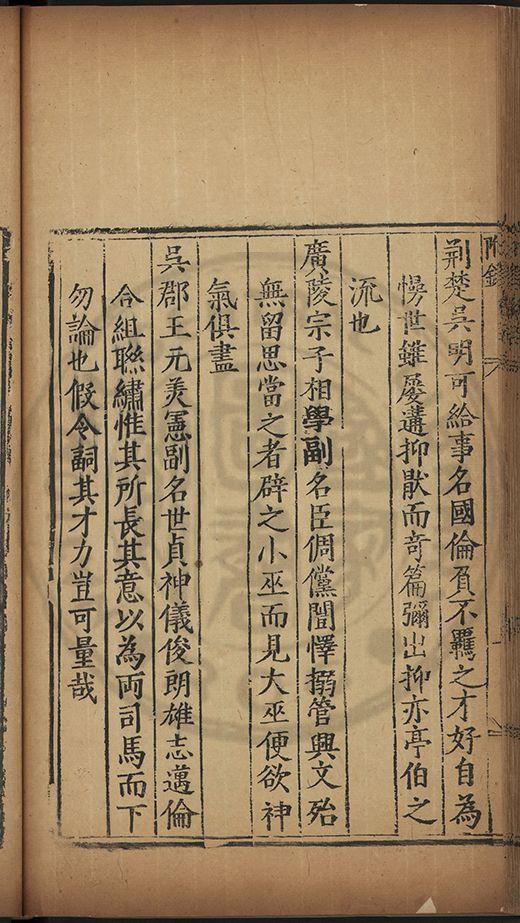 附錄
荆楚吳明可給事名國倫負不羈之才好自為
慢世雖屢遘抑猒而竒篇彌出抑亦亭伯之
流也
廣陵宗子相學副名臣倜儻誾懌搦管興文殆
無留思當之者辟之小巫而見大巫便欲神
氣俱盡
吳郡王元羙憲副名世貞神儀俊朗雄志邁倫
合組聯繡惟其所長其意以為両司馬而下
勿論也假令嗣其才力豈可量哉